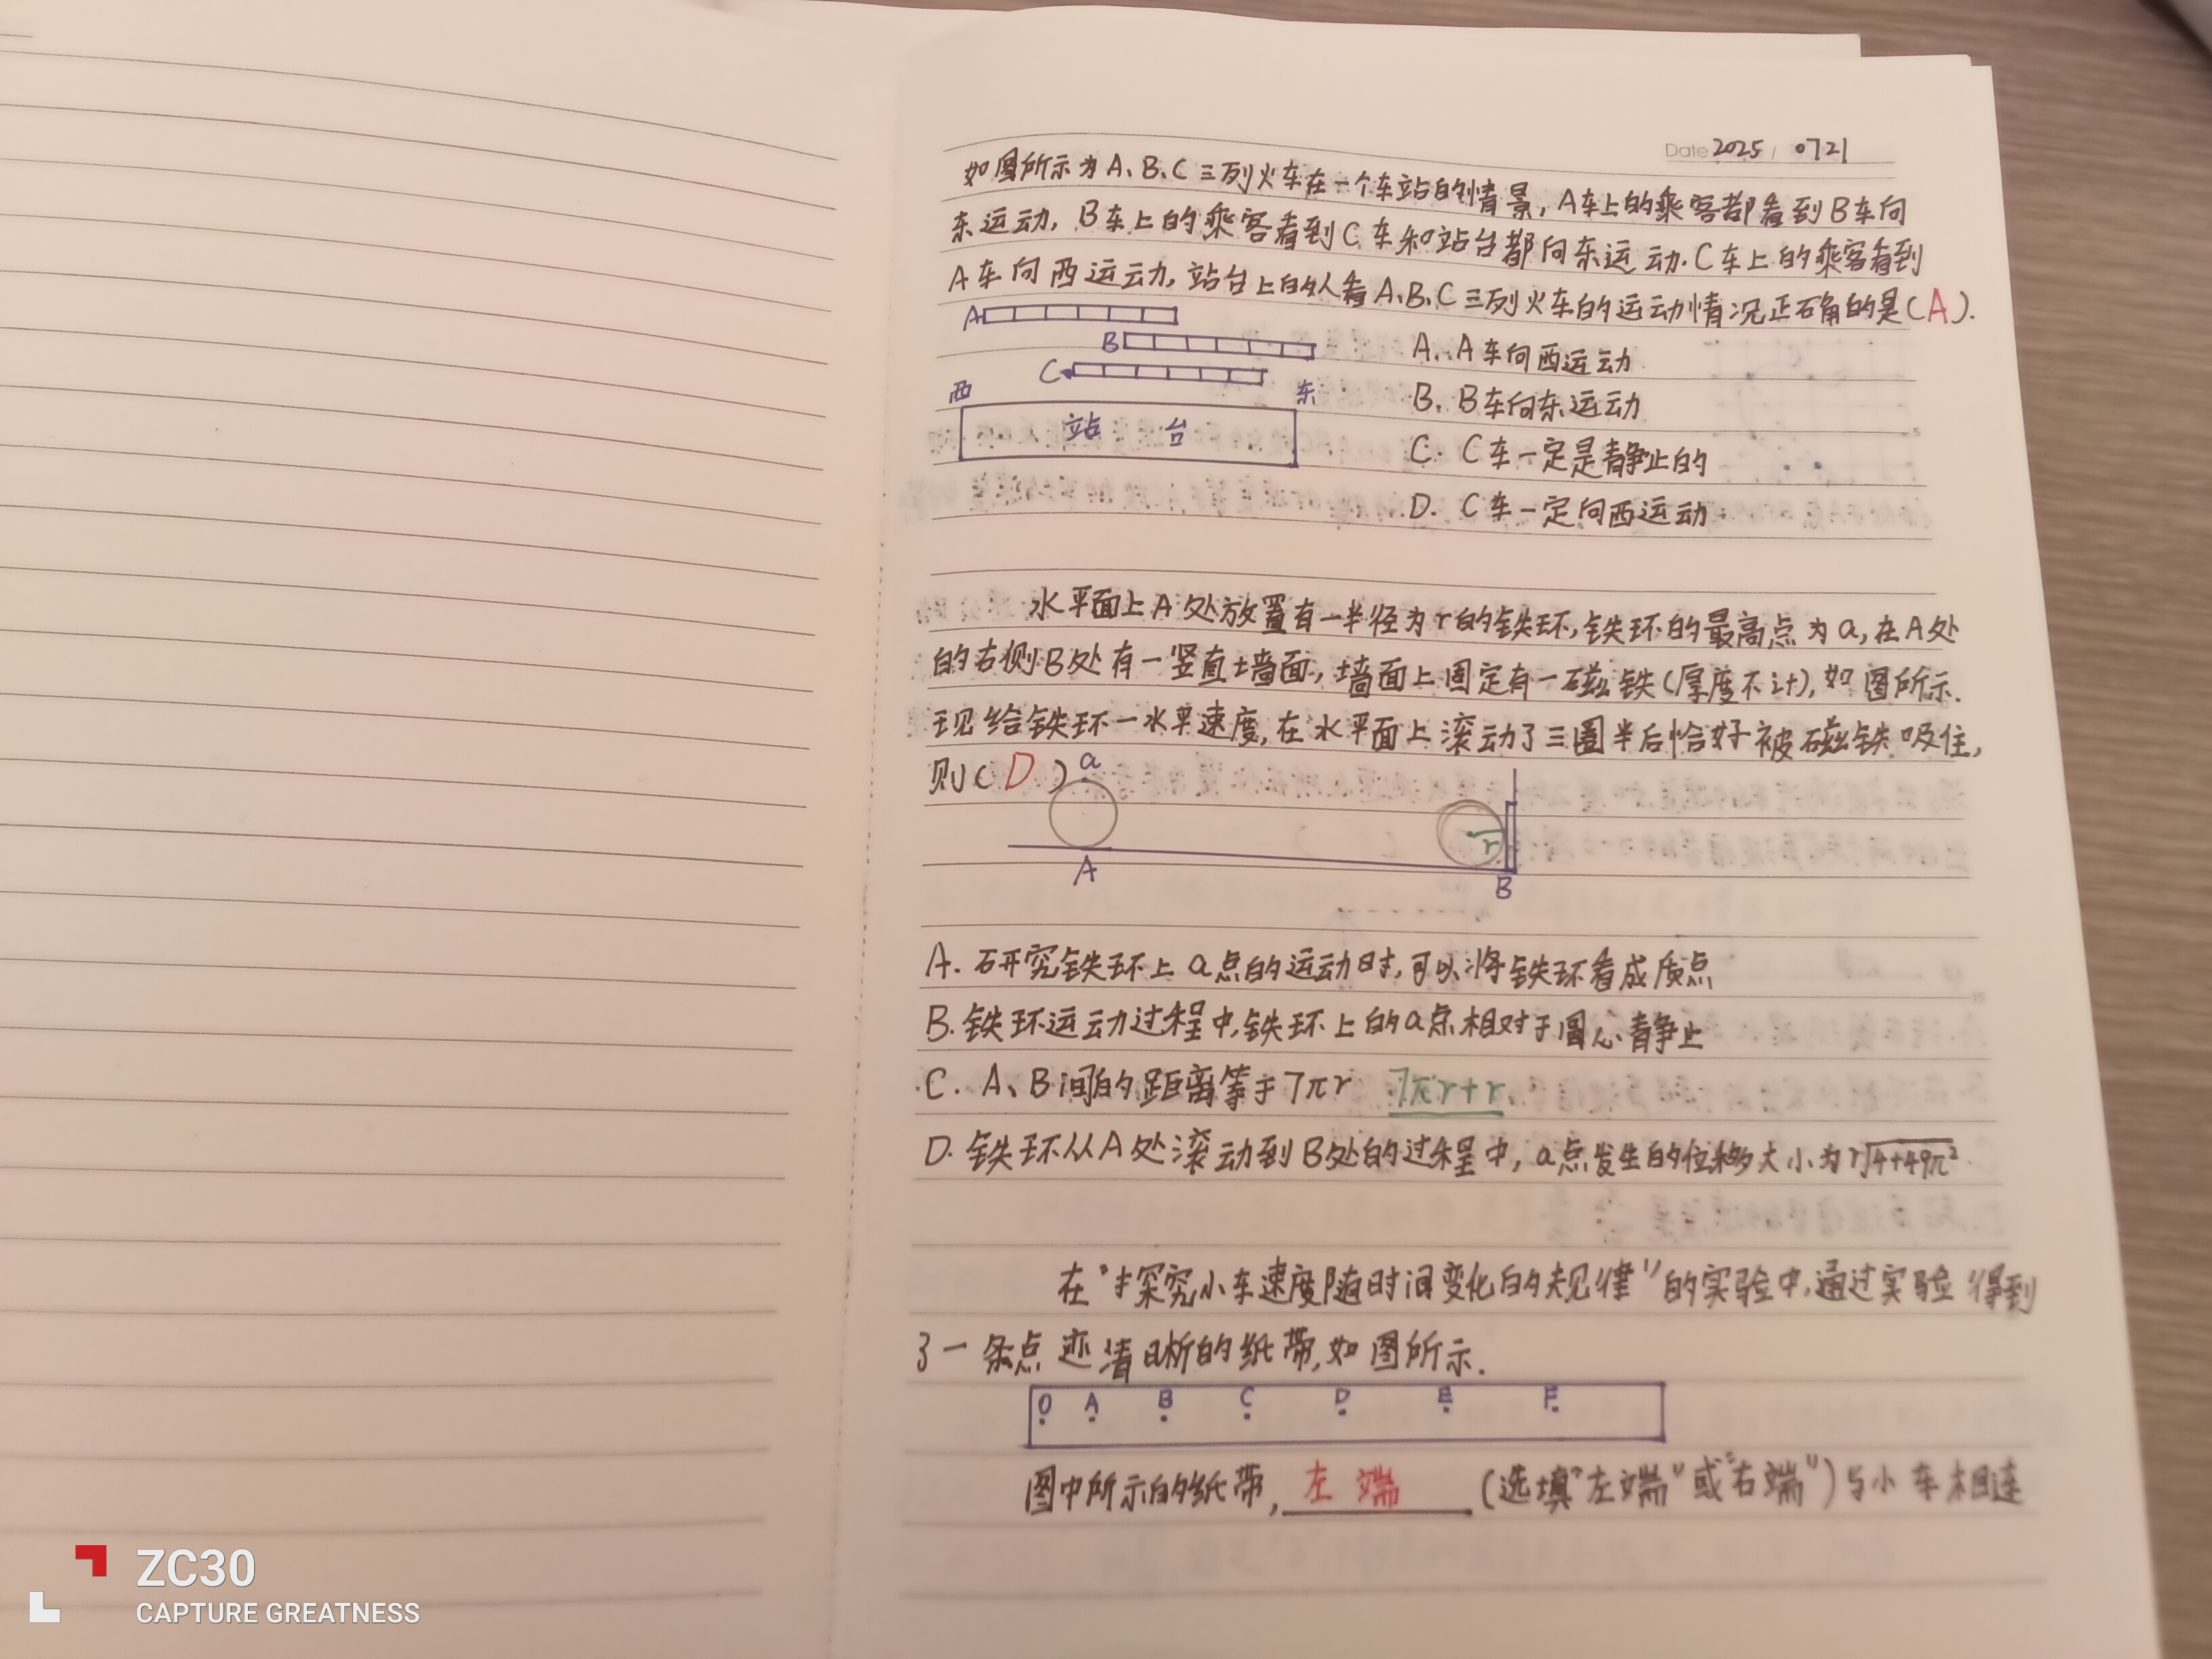 Date 2025 / 0721
如图所示为A、B、C三列火车在一个车站的情景,A车上的乘客都看到B车向
东运动,B车上的乘客看到C车和站台都向东运动.C车上的乘客看到
A车向西运动,站台上的人看A、B、C三列火车的运动情况正确的是(A).
A
B
C
西
东
站台
A. A车向西运动
B. B车向东运动
C. C车一定是静止的
D. C车一定向西运动
水平面上A处放置有一半径为r的铁环,铁环的最高点为a,在A处
的右侧B处有一竖直墙面,墙面上固定有一磁铁(厚度不计),如图所示.
现给铁环一水平速度,在水平面上滚动了三圈半后恰好被磁铁吸住,
则(D)
a
r
A
B
A. 研究铁环上a点的运动时,可以将铁环看成质点
B. 铁环运动过程中,铁环上的a点相对于圆心静止
C. A、B间的距离等于7πr 7πr+r
D. 铁环从A处滚动到B处的过程中,a点发生的位移大小为r√4+49π²
在"探究小车速度随时间变化的规律"的实验中,通过实验得到
了一条点迹清晰的纸带,如图所示.
O A B C D E F
图中所示的纸带,左端(选填"左端"或"右端")与小车相连
ZC30
CAPTURE GREATNESS